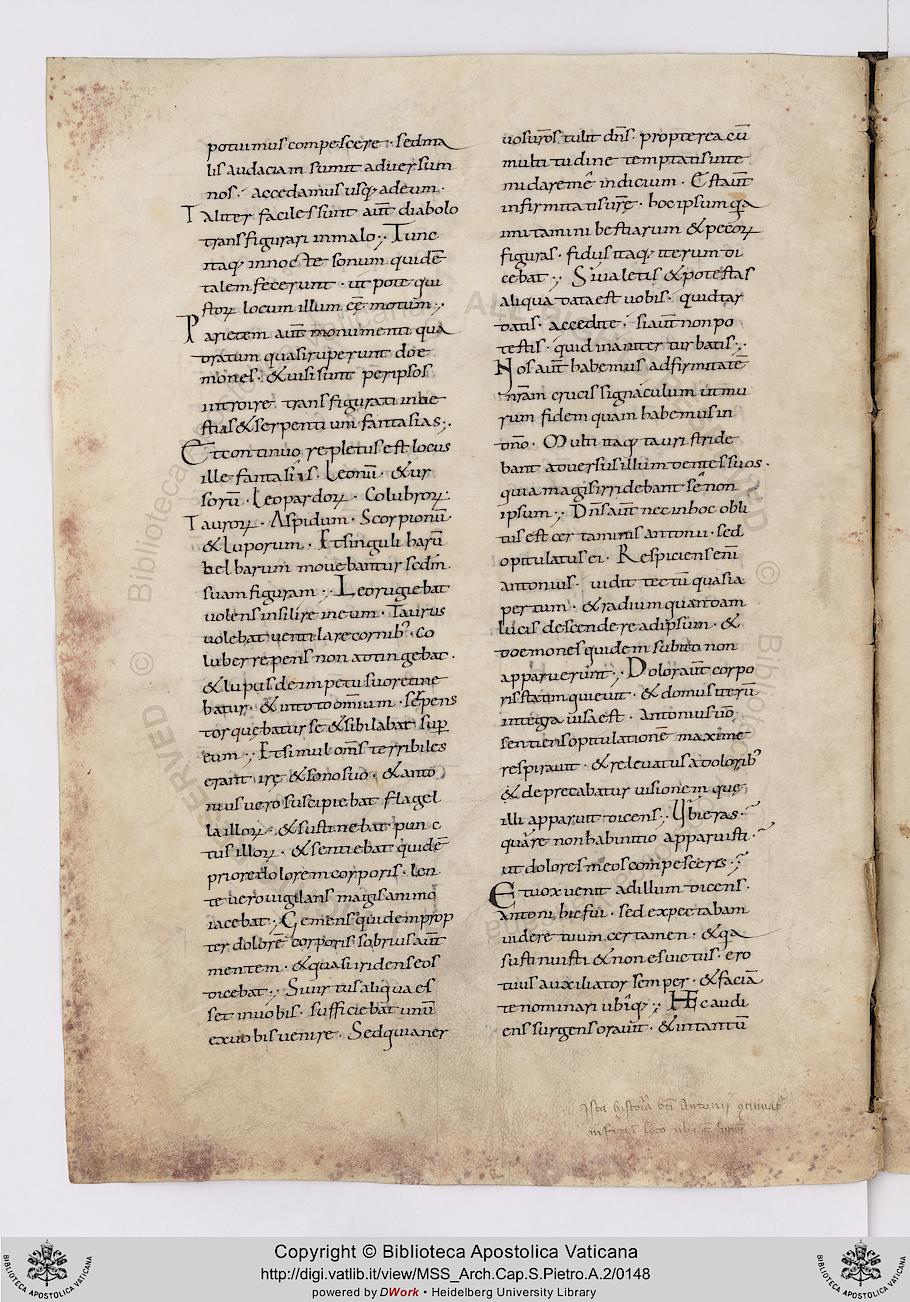 potuimus compescere · sed ma
lis audaciam sumit adversum
nos · accedamus usq; ad eum ·
Taliter faciles sunt aut̅ diabolo
transfigurari in malo ;, Tunc
itaq; in nocte sonum quidē
talem fecerunt · ut pote qui
stoꝝ locum illum ēē motum ;,
Parietem aut̅ monumenti qua
oratum quasi ruperunt doe
mones · & uisi sunt per ipsos
introire transfigurati in be
stias & serpentium fantasias ;,
Et continuo repletus est locus
ille fantasiis · Leonū · & ur
sorū · Leopardoꝝ · Colubroꝝ ·
Tauroꝝ · Aspidum · Scorpionū
& luporum · Et singuli harū
beluarum movebantur sedm̅
suam figuram ;, Leo rugiebat
uolens insilire in eum · Taurus
uolebat uentilare cornib; · co
luber repens non adtingebat ·
& lupus de impetu suo retine
batur · & in toto omnium · serpens
torquebatur se & sibilabat sup̲
eum ;, Et simul om̅s terribiles
erant irę & sono suo · & anto
nius uero suscipiebat flagel
la illoꝝ · & sustinebat punc
tus illoꝝ · & sentiebat quidē
priore dolorem corporis · Ien
te uero uigilans magis animo
iacebat ;, Gemens quidem prop
ter dolorē corporis sobrius aut̅
mentem · & quasi iridens eos
dicebat ;, Si uirtus aliqua es
set in uobis · sufficiebat unū
ex uobis uenire · Sed quia ner
uos ur̅os tulit dn̅s · propterea cū
multitudine temptatis in te
mi dare me in dicium · Est aut̅
infirmitatis ur̅ę · hoc ipsum qa
imitamini bestiarum & pecoꝝ
figuras · fidus itaq; iterum di
cebat ;, Si ualetis & potestas
aliqua data est uobis · quid tar
datis · accedite · si aut̅ non po
testis · quid inaniter turbatis ;,
Nos aut̅ habemus ad firmitatē
nr̅am crucis signaculum ut mu
rum fidem quam habemus in
dn̅o · Multi itaq; tauri stride
bant adversus illum dentes suos ·
quia magis irridebant se non
ipsum ;, Dn̅s aut̅ nec in hoc obli
tus est certaminis antonii · sed
opitulatus ei · Respiciens eni̅
antonius · uidit tectū quasi a
pertum · & radium quandam
lucis descendere ad ipsum · &
doemones quidem subito non
apparuerunt ;, Dolor aut̅ corpo
ris statim quieuit · & domus iterū
integra uisa est · Antonius uō
sentiens opitulationē maxime
respirauit · & releuatus a dolorib;
& deprecabatur uisionem quę
illi apparuit dicens ;, Ubi eras ·
quare non hab initio apparuisti ·
ut dolores meos compesceris ·
Et uox uenit ad illum dicens ·
Antoni hic fui · sed expectabam
uidere tuum certamen · & qa
sustinuisti & non es uictus · ero
tuus auxiliator semper · & faciā
te nominari ubiq; ;, Hęc audi
ens surgens orauit · & in tantū
Ista historia bti Antonii
loco ubi
Copyright © Biblioteca Apostolica Vaticana
http://digi.vatlib.it/view/MSS_Arch.Cap.S.Pietro.A.2/0148
powered by DWork • Heidelberg University Library
BIBLIOTECA APOSTOLICA VATICANA
BIBLIOTECA APOSTOLICA VATICANA